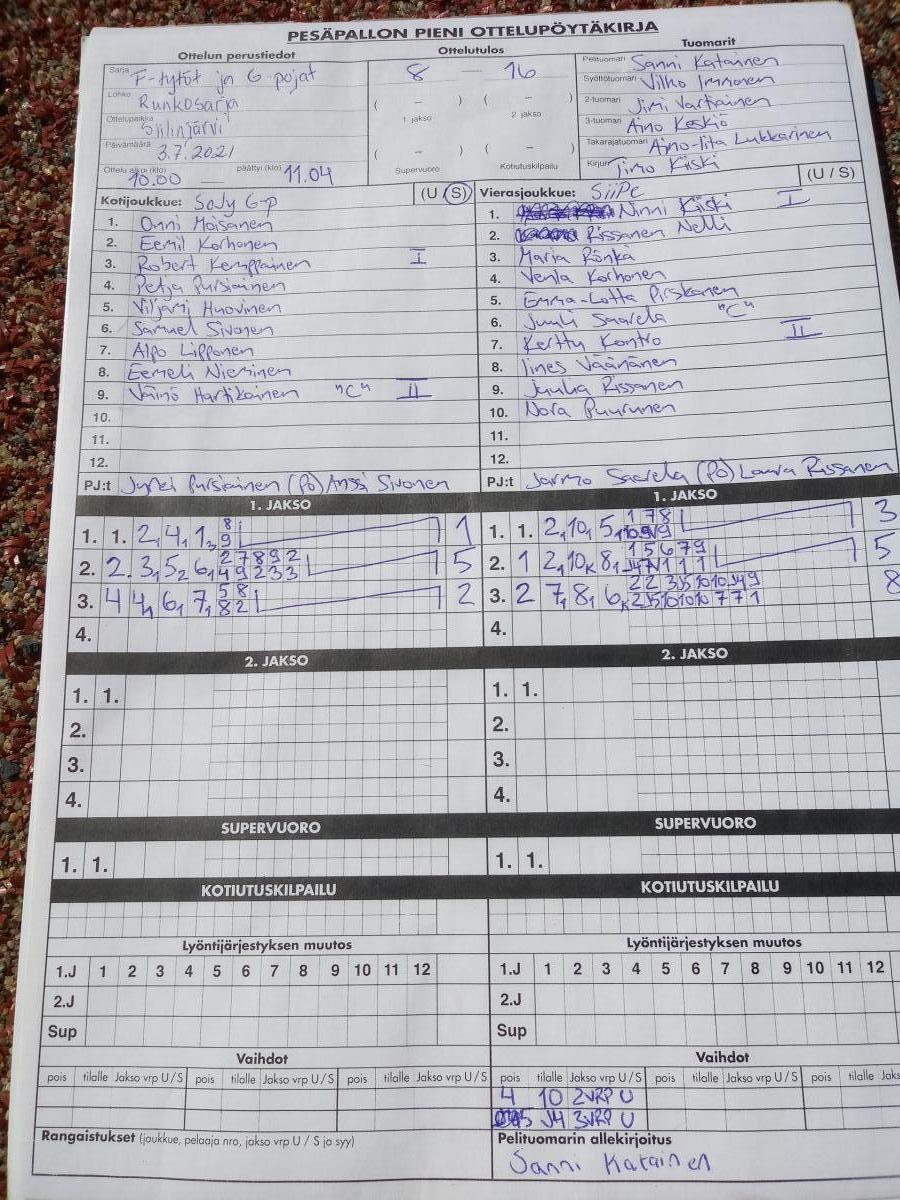 PESÄPALLON PIENI OTTELUPÖYTÄKIRJA
Ottelun perustiedot
Ottelutulos
Tuomarit
Sarja F-tytöt ja G-pojat
Lohko Runkosarja
Ottelupaikka Siilinjärvi
Päivämäärä 3.7.2021
Ottelu alkoi (klo) 10.00 päättyi (klo) 11.04
8 — 16
( – ) ( – )
1 jakso 2 jakso
( – ) ( – )
Supervuoro Kotiutuskilpailu
Pelituomari Sanni Katainen
Syöttötuomari Vilho Immonen
2-tuomari Jimi Vartiainen
3-tuomari Aino Keskiö
Takarajatuomari Aino-Iita Lukkarinen
Kirjuri Timo Kiiski
Kotijoukkue: SoJy G-p (U / S)
1. Onni Moisanen
2. Eemil Korhonen
3. Robert Kemppainen I
4. Petja Pursiainen
5. Viljami Huovinen
6. Samuel Sivonen
7. Alpo Lipponen
8. Eemeli Nieminen
9. Väinö Hartikainen "C" II
10.
11.
12.
PJ:t Jyrki Pursiainen (PJ) Anssi Sivonen
Vierasjoukkue: SiiPe (U / S)
1. Ninni Kiiski I
2. Rissanen Nelli
3. Maria Rönkä
4. Venla Korhonen
5. Emma-Lotta Pirskanen
6. Juuli Saarela "C"
7. Kerttu Kontro II
8. Iines Väänänen
9. Juulia Rissanen
10. Nora Puurunen
11.
12.
PJ:t Jarmo Saarela (PJ) Laura Rissanen
1. JAKSO
1. 1. 2, 4, 1, 8 9 1
2. 2. 3, 5 2 6, 2 7 8 9 2 4 9 2 3 3 5
3. 4 4, 6, 7, 5 8 8 2 2
4.
1. JAKSO
1. 1. 2, 10, 5, 1 7 8 3
2. 1 2, 10 K 8, 1 5 6 7 9 5
3. 2 7, 8, 6 K 8
4.
2. JAKSO
1. 1.
2.
3.
4.
2. JAKSO
1. 1.
2.
3.
4.
SUPERVUORO
1. 1.
SUPERVUORO
1. 1.
KOTIUTUSKILPAILU
KOTIUTUSKILPAILU
Lyöntijärjestyksen muutos
1.J 1 2 3 4 5 6 7 8 9 10 11 12
2.J
Sup
Lyöntijärjestyksen muutos
1.J 1 2 3 4 5 6 7 8 9 10 11 12
2.J
Sup
Vaihdot
pois tilalle Jakso vrp U / S pois tilalle Jakso vrp U / S pois tilalle Jakso vrp U / S
Vaihdot
pois tilalle Jakso vrp U / S pois tilalle Jakso vrp U / S pois tilalle Jaks
4 10 2VRP U
5 J4 3VRP U
Rangaistukset (joukkue, pelaaja nro, jakso vrp U / S ja syy)
Pelituomarin allekirjoitus
Sanni Katainen